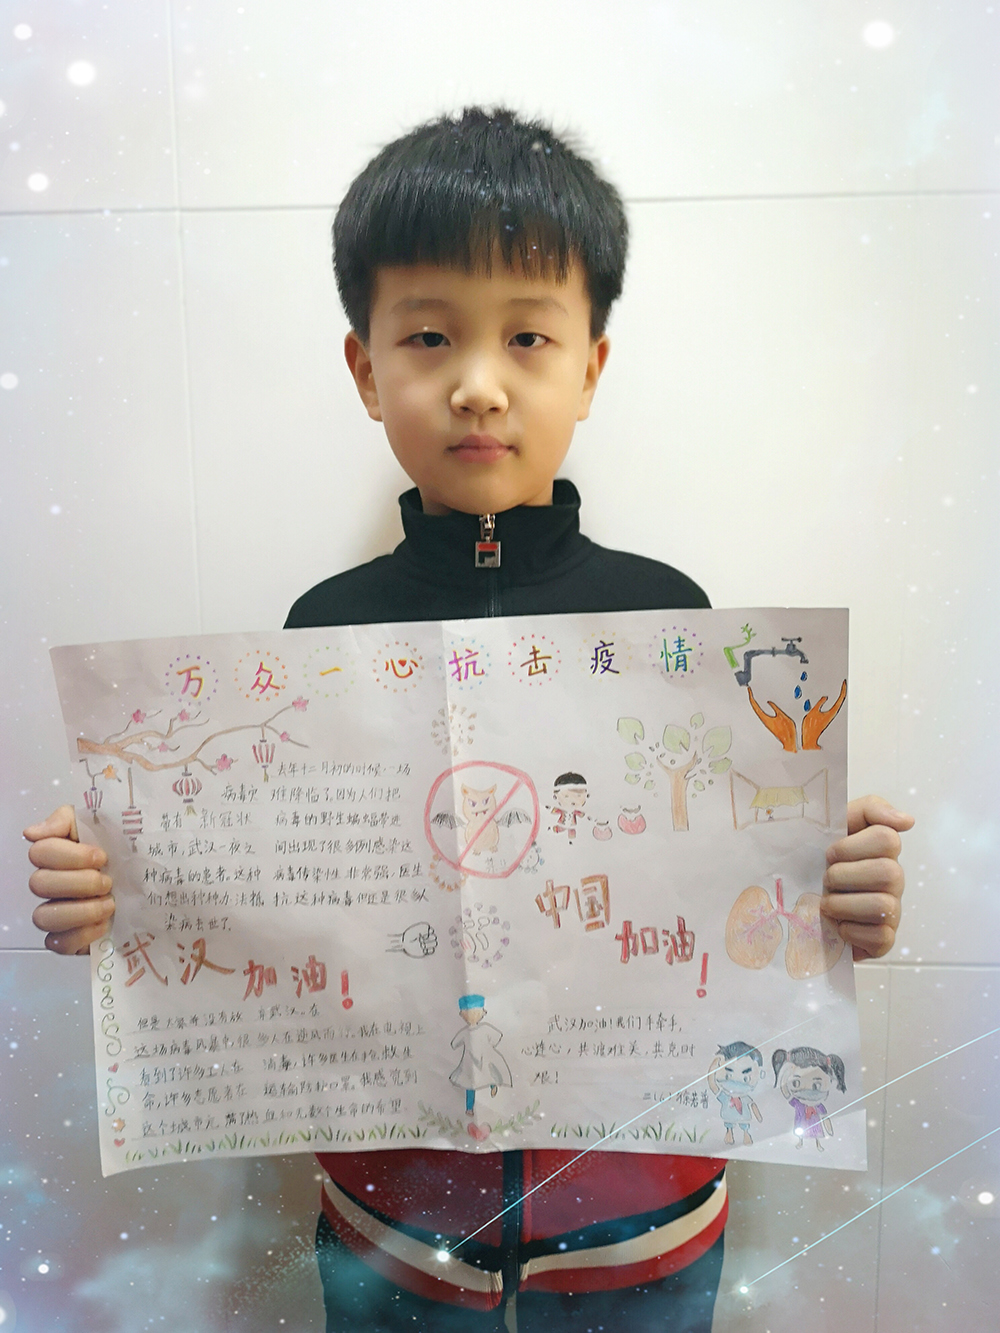 万众一心抗击疫情
去年十二月初的时候，一场
病毒灾难降临了。因为人们把
带有新冠状病毒的野生蝙蝠带进
城市，武汉一夜之间出现了很多例感染这
种病毒的患者。这种病毒传染性非常强，医生
们想出种种办法抵抗这种病毒但还是很多人
染病去世了。
武汉加油！
中国
加油！
但是大家并没有放弃武汉。在
这场病毒风暴中很多人在逆风而行。我在电视上
看到了许多工人在消毒，许多医生在抢救生
命，许多志愿者在运输防护口罩。我感觉到
这个城市充满了热血和无数个生命的希望
武汉加油！我们手牵手，
心连心，共渡难关，共克时
艰！
二（6）徐若